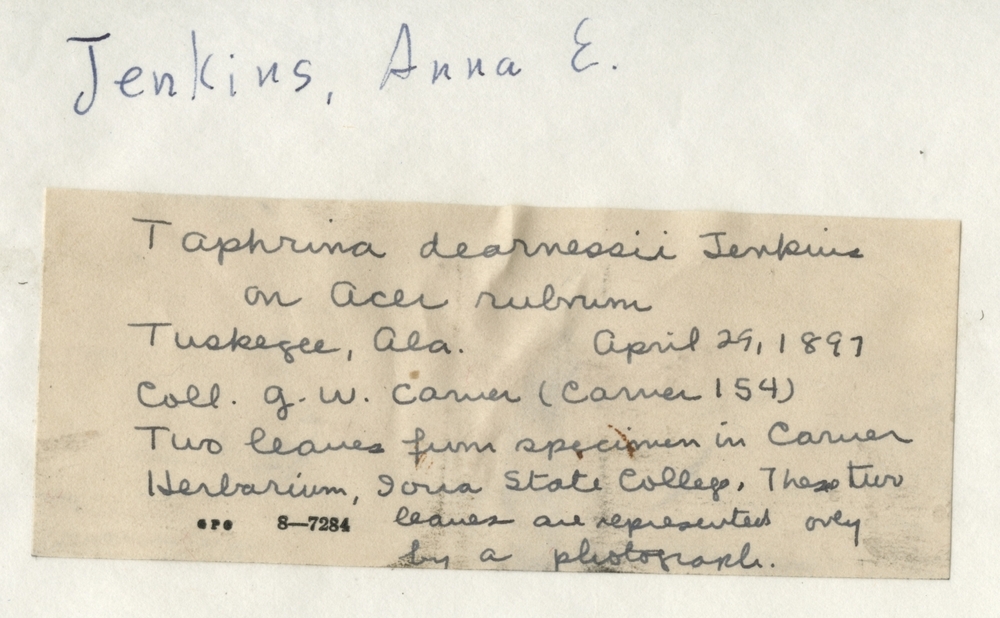 Jenkins, Anna E.
Taphrina dearnessii Jenkins
on Acer rubrum
Tuskegee, Ala. April 29, 1897
Coll. G. W. Carver (Carver 154)
Two leaves from specimen in Carver
Herbarium, Iowa State College. These two
GPO 8—7284 leaves are represented only
by a photograph.